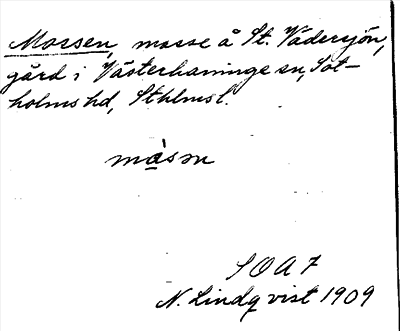 Mossen, mosse å St. Vädersjön,
gård i Västerhaninge sn, Sot-
holms hd, Sthlms l.
måsɐn
SOA 7
N. Lindqvist 1909